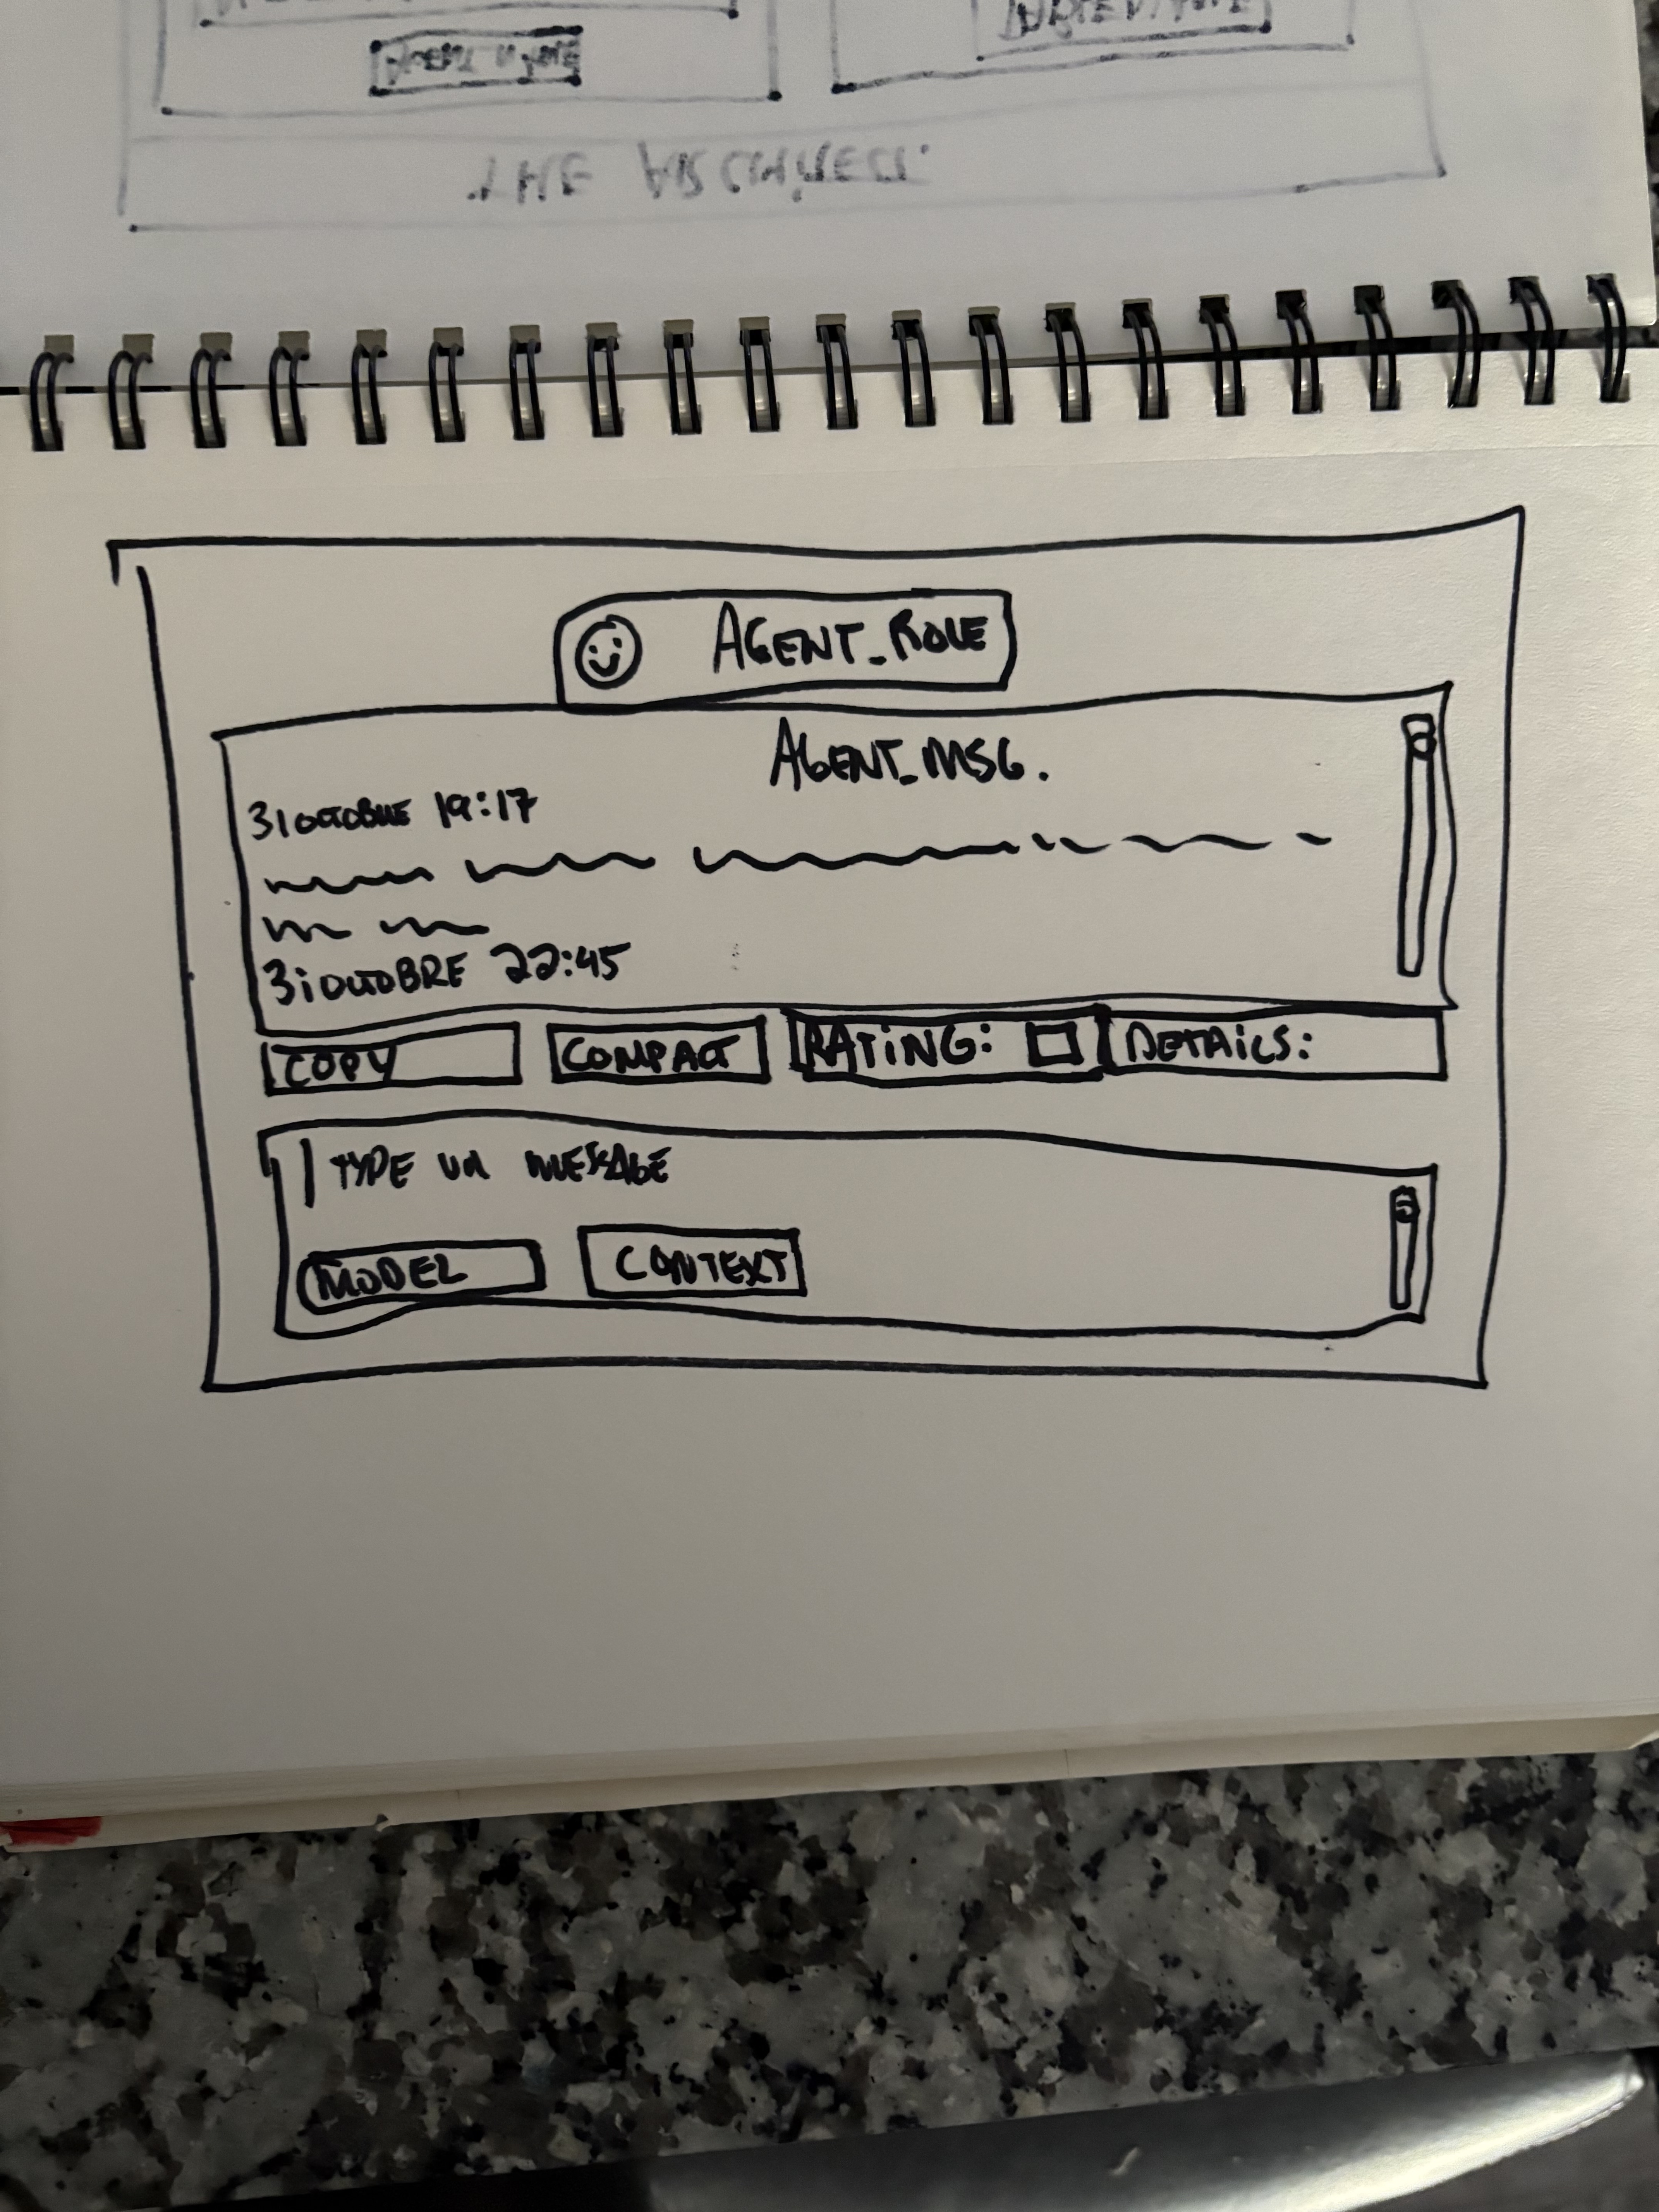 THE ARCHITECT.
AGENT_ROLE
AGENT_MSG.
31 OCTOBRE 19:17
31 OCTOBRE 22:45
COPY
COMPACT
RATING:
DETAILS:
TYPE UN MESSAGE
MODEL
CONTEXT